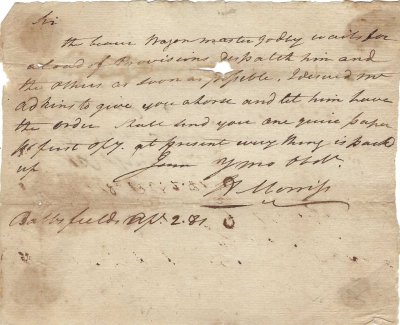 Sir
the bearer Wagon master Godby waits for
a load of Provisions despatch him and
the others as soon as possible. I desired Mr
Adkins to give you a horse and let him have
the order Shall send you one quire paper
first at present every thing is pack'd
up
Your Obd.
Morris
Battsfields Ap. 2. 81